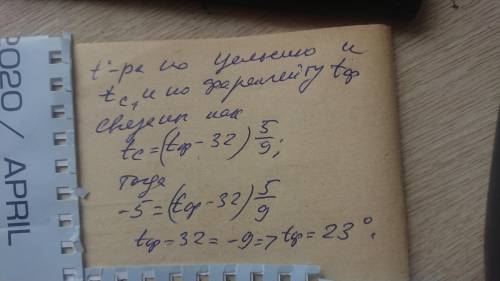 2020 / APRIL
t°-ра по цельсию и
tc, и по фаренгейту tф
связаны как
tc=(tф-32)5/9;
тогда
-5=(tф-32)5/9
tф-32=-9=>tф=23°.